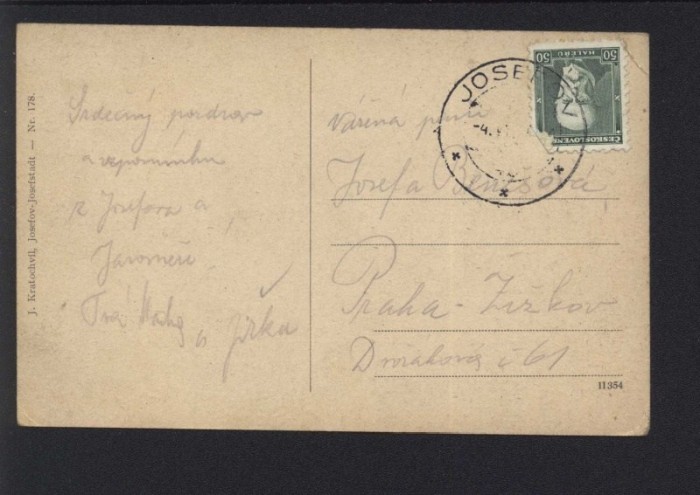 J. Kratochvíl, Josefov-Josefstadt — Nr. 178.
Srdečný pozdrav
a vzpomínku
z Josefova a
Jaroměře
Tvá
a Jirka
JOSEFOV
-4.
50 HALÉŘŮ 50
ČESKOSLOVENSK
Vážená paní
Josefa Benešová
Praha - Žižkov
Dvořákova č 61
11354